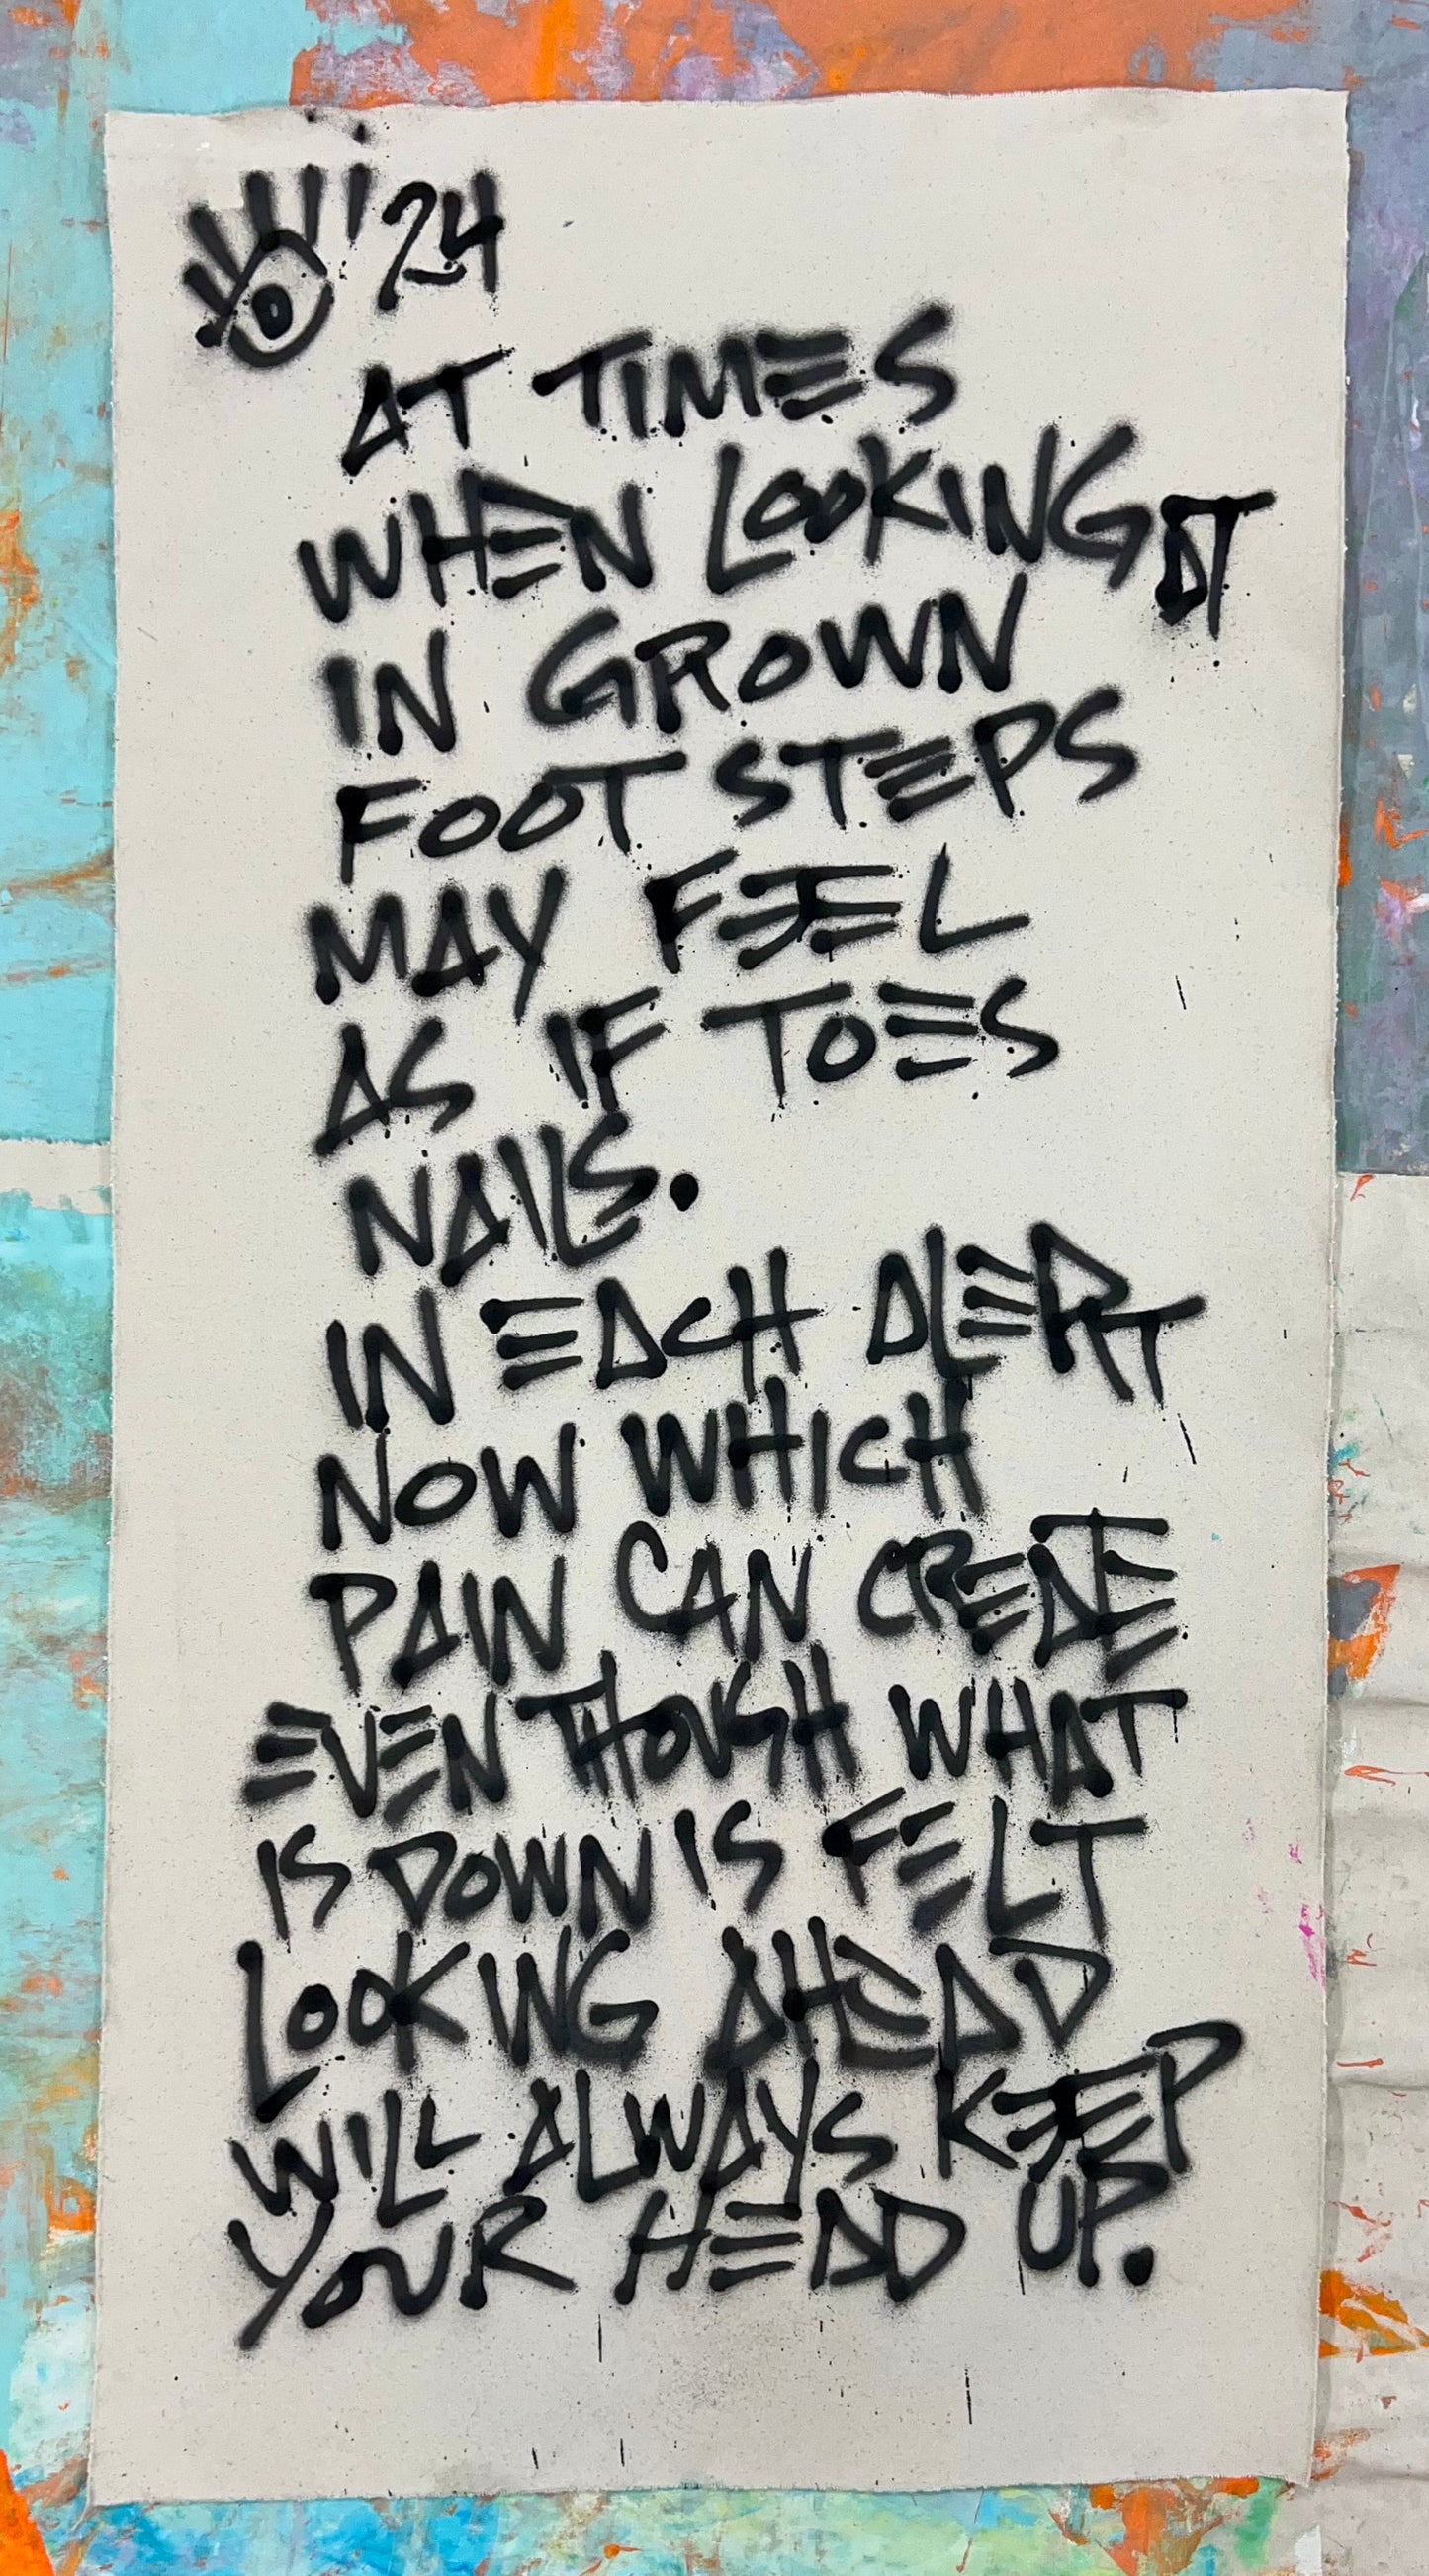 '24
AT TIMES
WHEN LOOKING AT
IN GROWN
FOOT STEPS
MAY FEEL
AS IF TOES
NAILS.
IN EACH ALERT
NOW WHICH
PAIN CAN CREATE
EVEN THOUGH WHAT
IS DOWN IS FELT
LOOKING AHEAD
WILL ALWAYS KEEP
YOUR HEAD UP.